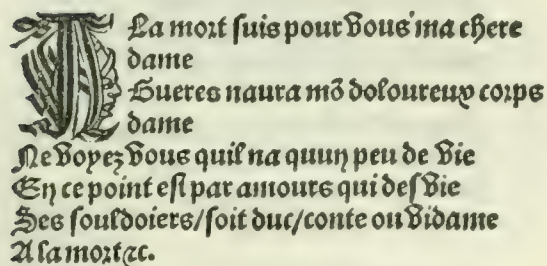 A La mort ſuis pour vous ma chere
dame
Gueres naura mõ doloureux corps
dame
Ne voyez vous quil na quun peu de vie
En ce point eſt par amours qui deſvie
Ses ſouldoiers/ſoit duc/conte ou vidame
A la mort ⁊c.